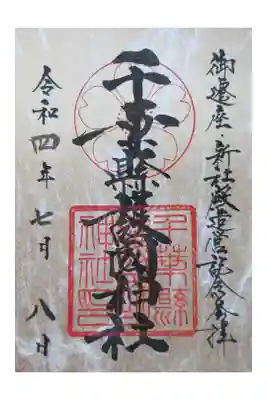 御遷座・新社殿造営記念奉拝
千葉縣護國神社
令和四年七月八日
千葉縣
護國
神社印